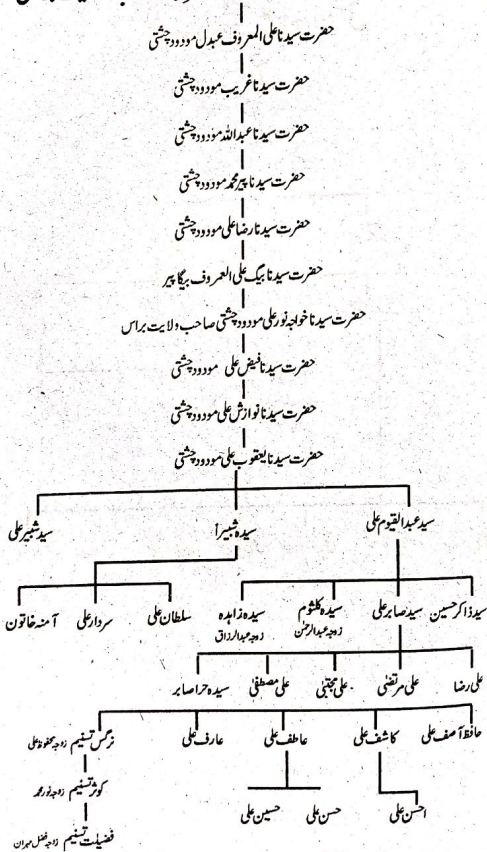 حضرت سیدنا علی المعروف عبدل مودود چشتی
حضرت سیدنا غریب مودود چشتی
حضرت سیدنا عبداللہ مودود چشتی
حضرت سیدنا پیر محمد مودود چشتی
حضرت سیدنا رضا علی مودود چشتی
حضرت سیدنا بیگ علی المعروف بیگا پیر
حضرت سیدنا خواجہ نور علی مودود چشتی صاحب ولایت براس
حضرت سیدنا فیض علی مودود چشتی
حضرت سیدنا نوازش علی مودود چشتی
حضرت سیدنا یعقوب علی مودود چشتی
سید عبدالقیوم علی سیدہ شبیراً سید شبیر علی
سید ذاکر حسین سید صابر علی سیدہ کلثوم سیدہ زاہدہ سلطان علی سردار علی آمنہ خاتون
زوجہ عبدالرحمٰن زوجہ عبدالرزاق
علی رضا علی مرتضیٰ علی مجتبیٰ علی مصطفیٰ سیدہ حرا صابر
حافظ آصف علی کاشف علی عاطف علی عارف علی نرگس تسنیم زوجہ محفوظ علی
کوثر تسنیم زوجہ نور محمد
احسن علی حسن علی حسین علی
فضیلت تسنیم زوجہ فضل مہران